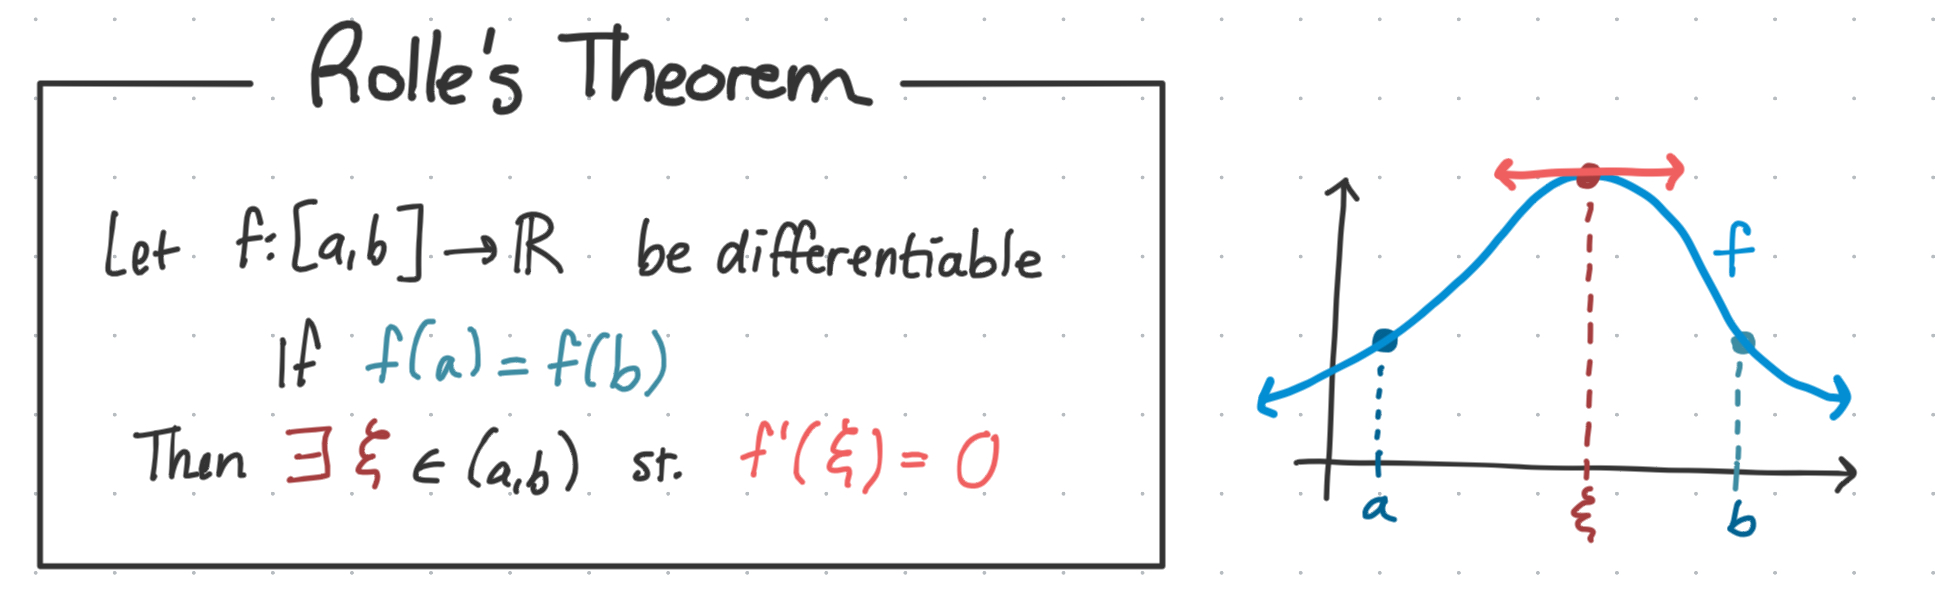 Rolle's Theorem
Let f: [a,b] → ℝ be differentiable
If f(a) = f(b)
Then ∃ ξ ∈ (a,b) st. f'(ξ) = 0
f
a
ξ
b